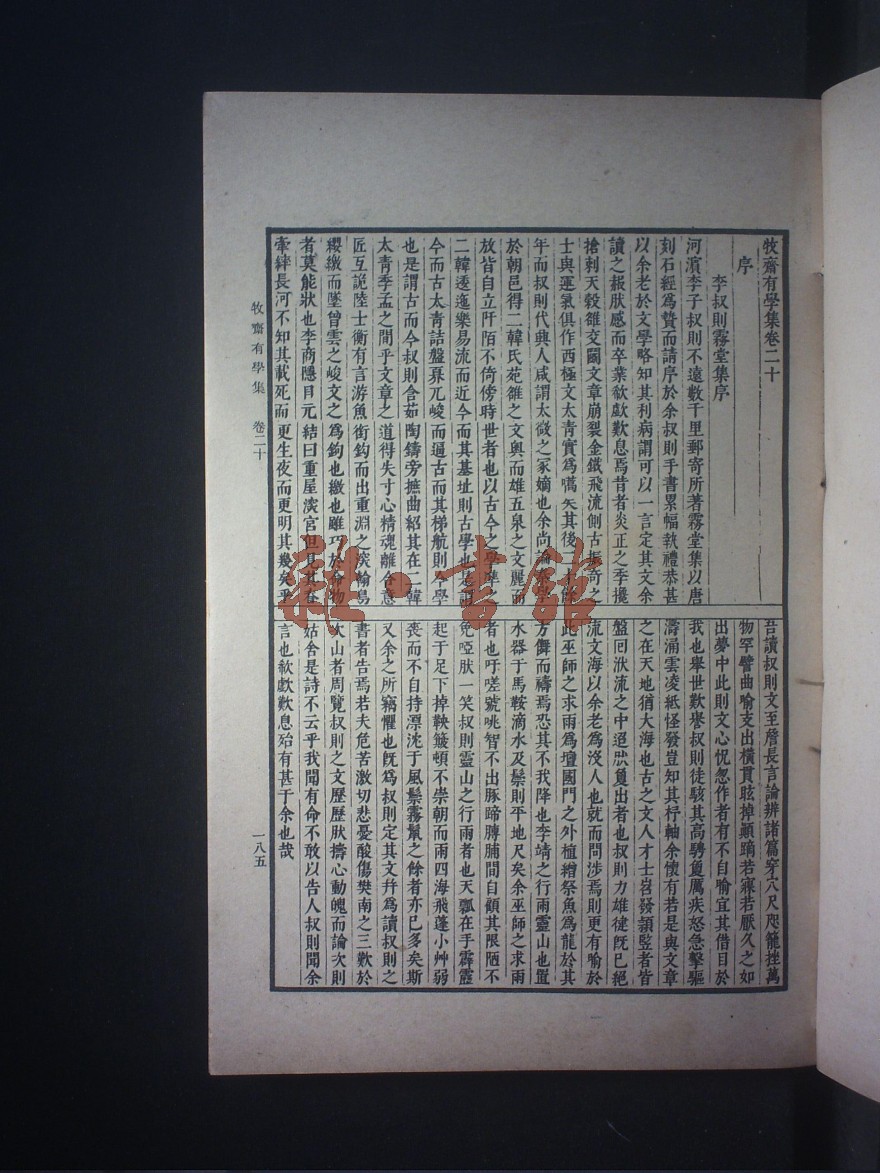 牧齋有學集卷二十
序
李叔則霧堂集序
河濱李子叔則不遠數千里郵寄所著霧堂集以唐
刻石經爲贄而請序於余叔則手書累幅執禮恭甚
以余老於文學略知其利病謂可以一言定其文余
讀之報肰感而卒業欷歔歎息焉昔者炎正之季攙
搶刺天穀雒交鬭文章崩裂金鐵飛流側古振奇之
士與運氣俱作西極文太青實爲嚆矢其後
年而叔則代興人咸謂太微之冢嫡也余尚論
於朝邑得二韓氏苑雒之文奧而雄五泉之文麗而
放皆自立阡陌不倚傍時世者也以古今之學
二韓逶迤樂易流而近今而其基址則古學也
今而古太青詰盤奡兀峻而逼古而其梯航則今學
也是謂古而今叔則含茹陶鑄旁摭曲紹其在二韓
太青季孟之間乎文章之道得失寸心精魂離合意
匠互詭陸士衡有言游魚銜鈎而出重淵之深翰鳥
纓繳而墜曾雲之峻文之爲鈎也繳也雖巧於命物
者莫能狀也李商隱目元結曰重屋深宮但見其脊
牽縴長河不知其載死而更生夜而更明其幾矣乎
吾讀叔則文至詹長言論辨諸篇穿穴尺咫籠挫萬
物罕譬曲喻支出橫貫眩掉顚蹢若寐若厭久之如
出夢中此則文心怳忽作者有不自喻宜其借目於
我也舉世歎譽叔則徒駭其高騁敻厲疾怒急擊驅
濤涌雲凌紙怪發豈知其杼軸余懷有若是與文章
之在天地猶大海也古之文人才士嵒發潁豎者皆
盤回洑流之中迢然敻出者也叔則力雄徤旣已絕
流文海以余老爲淺人也就而問涉焉則更有喻於
此巫師之求雨爲壇國門之外植繒祭魚爲龍於其
方儛而禱焉恐其不我降也李靖之行雨靈山也置
水器于馬鞍滴水及鬃則平地尺矣余巫師之求雨
者也吁嗟號咷智不出豚蹄膊脯間自顧其限陋不
免啞肰一笑叔則靈山之行雨者也天瓢在手霹靂
起于足下掉鞅簸頓不崇朝而雨四海飛蓬小艸弱
喪而不自持漂沈于風鬃霧鬣之餘者亦已多矣斯
又余之所竊懼也旣爲叔則定其文幷爲讀叔則之
書者告焉若夫危苦激切悲憂酸傷樊南之三歎於
次山者周覽叔則之文歷歷肰擣心動魄而論次則
姑舍是詩不云乎我聞有命不敢以告人叔則聞余
言也欷歔歎息殆有甚于余也哉
牧齋有學集 卷二十
一八五
雜·書館